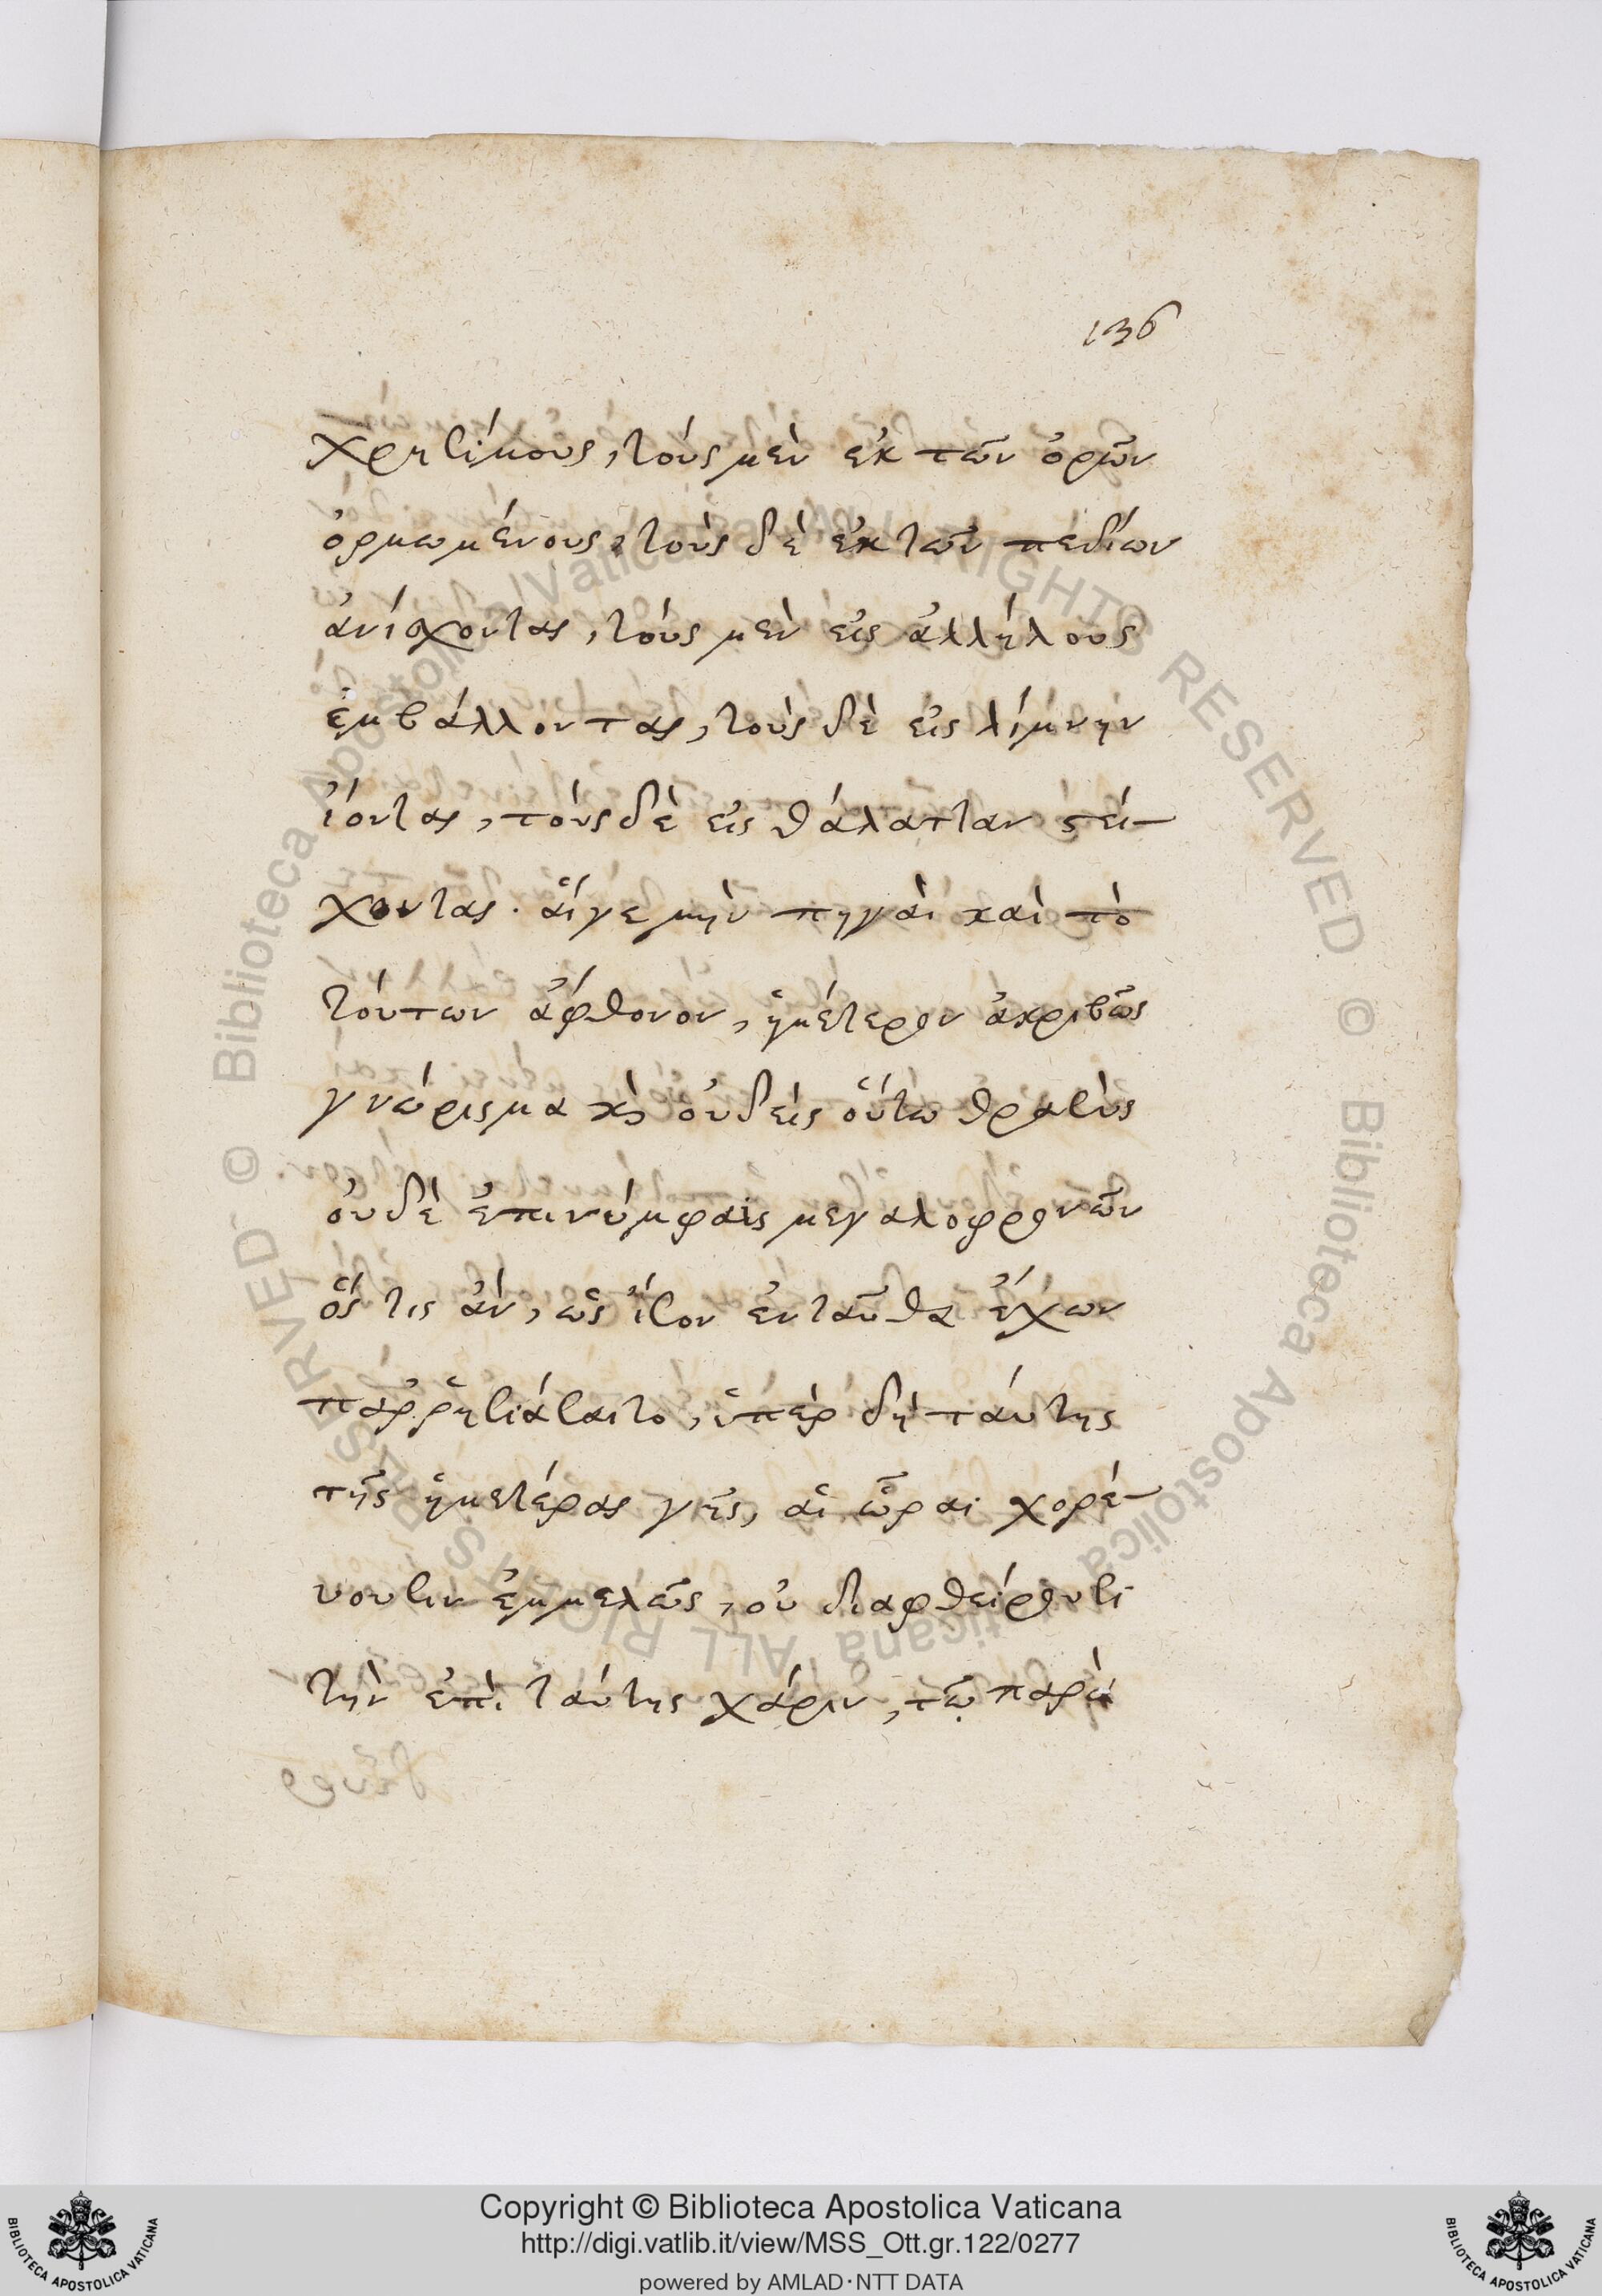 136
χρησίμους, τοὺς μὲν ἐκ τῶν ὀρῶν
ὁρμωμένους, τοὺς δὲ ἐκ τῶν πεδίων
ἀνίσχοντας, τοὺς μὲν εἰς ἀλλήλους
ἐμβάλλοντας, τοὺς δὲ εἰς λίμνην
ἰόντας, τοὺς δὲ εἰς θάλατταν στεί-
χοντας. αἵγε μὴν πηγαὶ καὶ τὸ
τούτων ἄφθονον, ἡμέτερον ἀκριβῶς
γνώρισμα καὶ οὐδεὶς οὕτω θρασὺς
οὐδὲ ἐπινύμφαις μεγαλοφρονῶν
ὅς τις ἂν, ὡς ἴσον ἐνταῦθα ἔχων
παῤῥησιάσαιτο, ὑπὲρ δὴ ταύτης
τῆς ἡμετέρας γῆς, αἱ ὧραι χορέ-
υουσιν ἐμμελῶς, οὐ διαφθείρουσι
τὴν ἐπὶ ταύτης χάριν, τῷ παρὰ
© Biblioteca Apostolica Vaticana ALL RIGHTS RESERVED
© Biblioteca Apostolica Vaticana ALL RIGHTS RESERVED
BIBLIOTECA APOSTOLICA VATICANA
Copyright © Biblioteca Apostolica Vaticana
http://digi.vatlib.it/view/MSS_Ott.gr.122/0277
powered by AMLAD·NTT DATA
BIBLIOTECA APOSTOLICA VATICANA